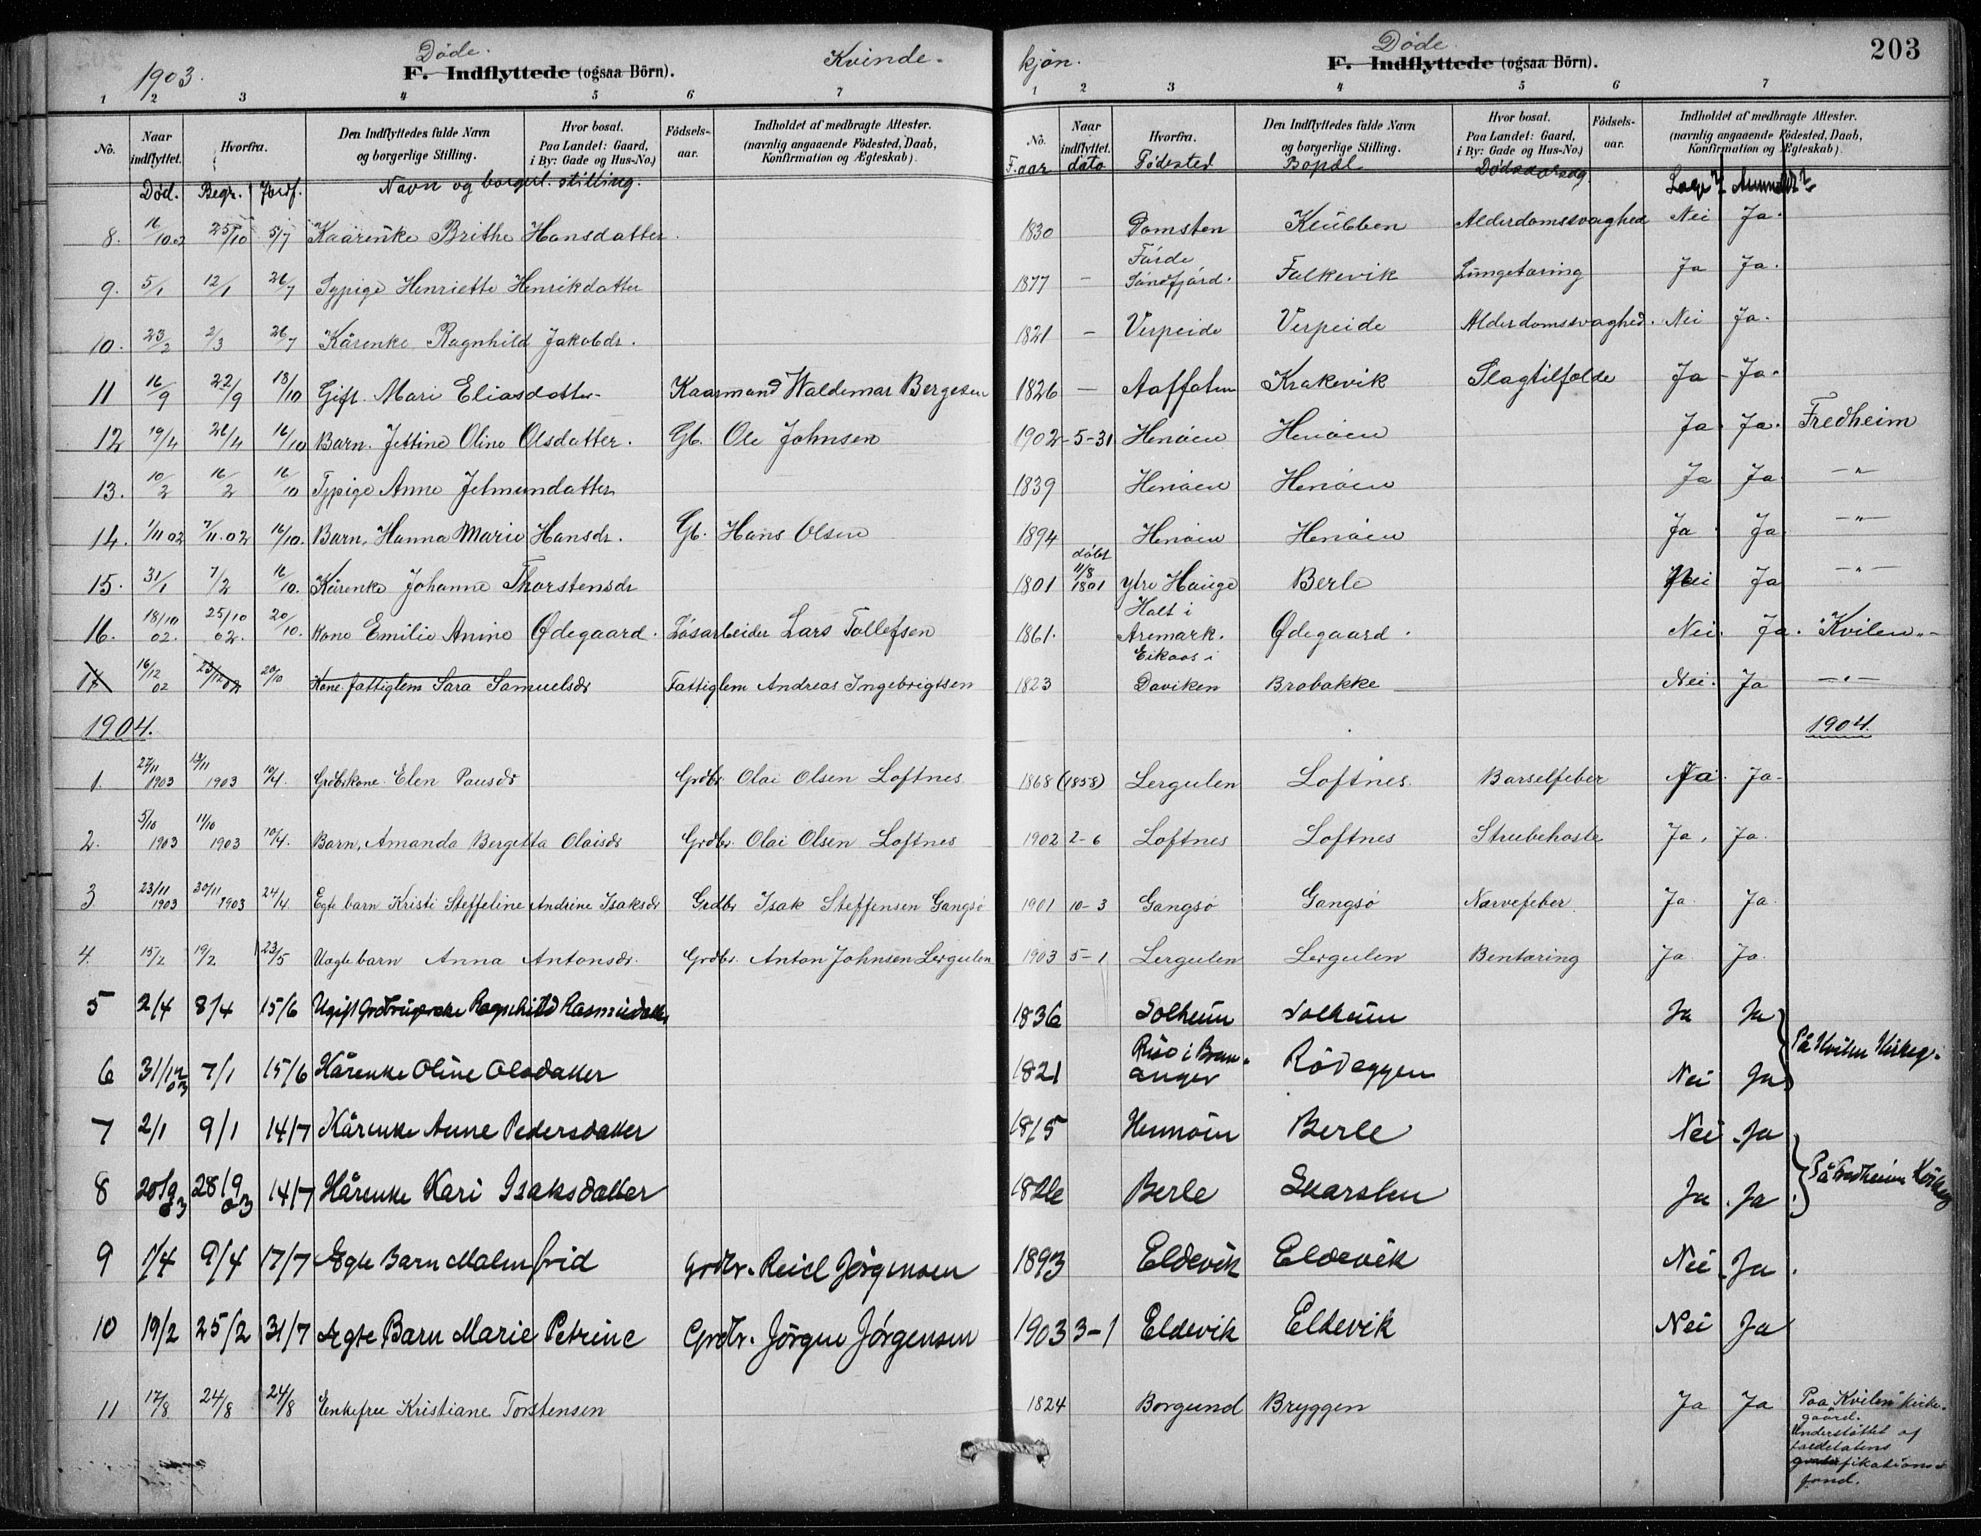 203
1903.
Døde.
F. Indflyttede (ogsaa Börn).
Kvinde-
kjøn.
Døde.
F. Indflyttede (ogsaa Börn).
1 2 3 4 5 6 7
1 2 3 4 5 6 7
No. Naar indflyttet. Hvorfra. Den Indflyttedes fulde Navn og borgerlige Stilling. Hvor bosat. Paa Landet: Gaard, i By: Gade og Hus-No.) Födsels-aar. Indholdet af medbragte Attester. (navnlig angaaende Födested, Daab, Konfirmation og Ægteskab).
No. Naar indflyttet. Hvorfra. Den Indflyttedes fulde Navn og borgerlige Stilling. Hvor bosat. Paa Landet: Gaard, i By: Gade og Hus-No.) Födsels-aar. Indholdet af medbragte Attester. (navnlig angaaende Födested, Daab, Konfirmation og Ægteskab).
Død. Begr. Jordf. Navn og borgerl. stilling.
F. aar dato Fødested Bopæl Dødsaarsag. Læge? Anmeldt?
8. 16/10.02 25/10 5/7 Kaarenke Brithe Hansdatter. 1830 Domsten Klubben Alderdomssvaghed Nei Ja.
9. 5/1 12/1 26/7 Typige Henriette Henrikdatter 1877 - Førde Søndfjord. Falkevik Lungetæring Ja Ja.
10. 23/2 2/3 26/7 Kårenke Ragnhild Jakobdr. 1821 - Verpeide Verpeide Alderdomssvaghed. Nei Ja.
11 16/9 22/9 18/10 Gift. Mari Eliasdatter- Kaarmand Waldemar Bergesen 1826 - Krakevik Slagtilfælde Ja - Ja.
12 19/4 26/4 16/10 Barn. Jettine Oline Olsdatter. Gb. Ole Johnsen 1902 - 5-31 Henøen Henøen Ja. Ja. Fredheim
13. 10/2 16/2 16/10 Typige Anne Jetmundatter 1839 Henøen Henøen Ja Ja. -"-
14. 1/11 02 7/11.02 16/10. Barn. Hanna Marie Hansdr. Gb. Hans Olsen 1894 Henøen Henøen Ja. Ja. -"-
15. 31/1 7/2 16/10. Kårenke Johanne Thorstensdr 1801 døbt 11/8 1801 Ytre Hauge Berle Nei Ja -"-
16. 18/10 02. 25/10 02. 20/10. Kone Emilie Anine Ødegaard. Løsarbeider Lars Tollefsen 1861. Holt i Aremark. Ødegaard. Nei. Ja. "Kvilen"-
17 16/12 02 23/12 02 20/10 Kone fattiglem Sara Samuelsdr Fattiglem Andreas Ingebrigtsen 1823 Eikaas i Daviken Brobakke Nei. Ja -"-
1904. 1904.
1. 27/11 1903 1903 10/4 Grdbrkone Elen Pausdr Grdbr Olai Olsen Loftnes 1868 (1858) Lergulen Loftnes. Barselfeber Ja. Ja-
2. 5/10 1903 11/10 1903 10/4. Barn, Amanda Bergetta Olaisdr Grdbr. Olai Olsen Loftnes 1902 2-6 Loftnes Loftnes Strubehoste Ja. Ja.
3 23/11 1903 30/11 1903 24/4 Egte barn Kristi Steffeline Andrine Isaksdr Grdbr Isak Steffensen Gangsø 1901 10-3 Gangsø Gangsø Nervefeber Ja. Ja.
4. 15/2 19/2 23/5 Uægte barn Anna Antonsdr. Grdbr. Anton Johnsen Lergulen 1903 5-1 Lergulen Lergulen Bentæring Ja Ja.
5 2/4 8/4 15/6 Ugift Ragnhild Rasmusdatter 1836 Solheim Solheim Ja Ja
6 31/12 03 7/1 15/6 Kårenke Oline Olsdatter 1821 Risø i Bremanger Rødeggen Nei Ja På Kvilen Kirkeg.
7 2/1 9/1 14/7 Kårenke Anne Pedersdatter 1815 Hennøen Berle Nei Ja
8 20/9 03 28/9 03 14/7 Kårenke Kari Isaksdatter 1826 Berle Skarsten Ja. Ja På Fredheim Kirkeg
9 1/4 9/4 17/7 Egte Barn Malmfrid Grdbr. Reiel Jørgensen 1893 Eldevik Eldevik Nei Ja.
10 19/2 25/2 31/7 Egte Barn Marie Petrine Grdbr. Jörgen Jörgensen 1903 3-1 Eldevik Eldevik Nei Ja
11 17/8 24/8 24/8 Enkefru Kristiane Torstensen 1824 Borgund Bryggen Ja Ja Paa "Kvilen" kirke-
gaard.
Understøttet af
fond.